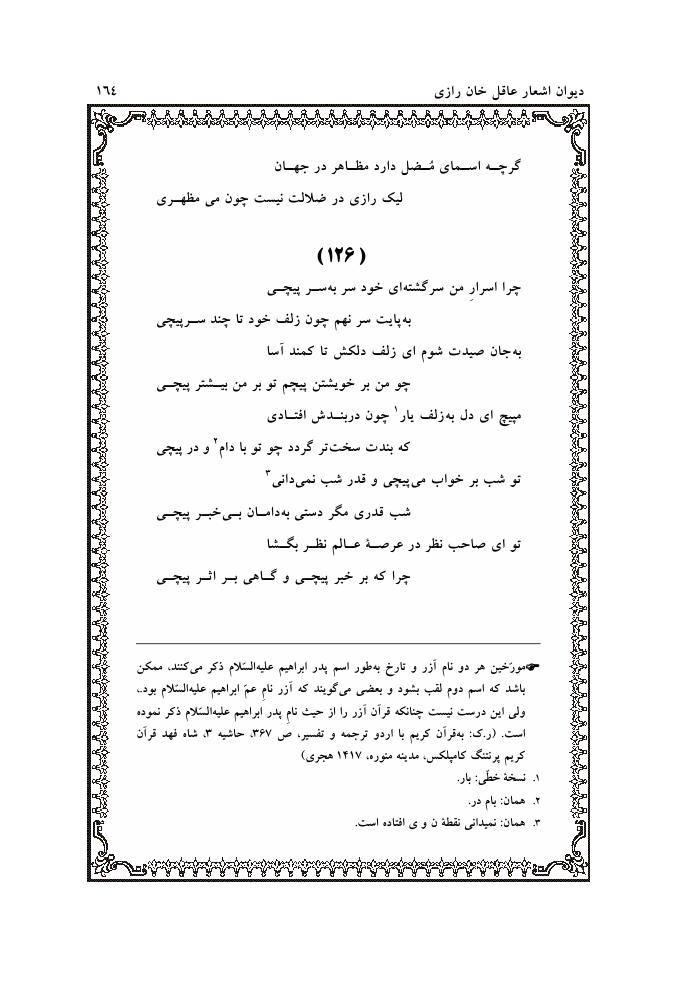 دیوان اشعار عاقل خان رازی ١٦٤
گرچه اسمای مُضل دارد مظاهر در جهان
لیک رازی در ضلالت نیست چون می مظهری
(۱۲۶)
چرا اسرارِ من سرگشته‌ای خود سر به‌سر پیچی
به‌پایت سر نهم چون زلف خود تا چند سرپیچی
به‌جان صیدت شوم ای زلف دلکش تا کمند آسا
چو من بر خویشتن پیچم تو بر من بیشتر پیچی
مپیچ ای دل به‌زلف یار۱ چون دربندش افتادی
که بندت سخت‌تر گردد چو تو با دام۲ و در پیچی
تو شب بر خواب می‌پیچی و قدر شب نمی‌دانی۳
شب قدری مگر دستی به‌دامان بی‌خبر پیچی
تو ای صاحب نظر در عرصهٔ عالم نظر بگشا
چرا که بر خبر پیچی و گاهی بر اثر پیچی
☛مورّخین هر دو نام آزر و تارخ به‌طور اسم پدر ابراهیم علیه‌السّلام ذکر می‌کنند، ممکن
باشد که اسم دوم لقب بشود و بعضی می‌گویند که آزر نامِ عمّ ابراهیم علیه‌السّلام بود.،
ولی این درست نیست چنانکه قرآن آزر را از حیث نامِ پدر ابراهیم علیه‌السّلام ذکر نموده
است. (ر.ک: به‌قرآن کریم با اردو ترجمه و تفسیر، ص ۳۶۷، حاشیه ۳، شاه فهد قرآن
کریم پرنتنگ کامپلکس، مدینه منوره، ۱۴۱۷ هجری)
۱. نسخهٔ خطّی: بار.
۲. همان: بام در.
۳. همان: نمیدانی نقطهٔ ن و ی افتاده است.